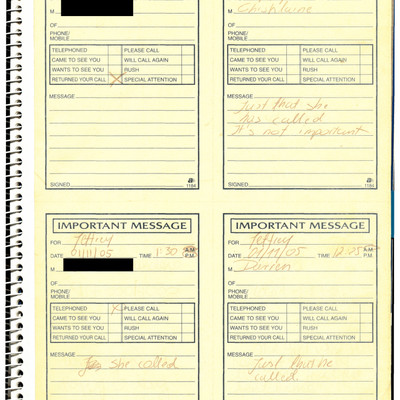 M
OF
PHONE/
MOBILE
TELEPHONED PLEASE CALL
CAME TO SEE YOU WILL CALL AGAIN
WANTS TO SEE YOU RUSH
RETURNED YOUR CALL X SPECIAL ATTENTION
MESSAGE
SIGNED 1184
M Ghishlaine
OF
PHONE/
MOBILE
TELEPHONED PLEASE CALL
CAME TO SEE YOU WILL CALL AGAIN
WANTS TO SEE YOU RUSH
RETURNED YOUR CALL SPECIAL ATTENTION
MESSAGE
Just that she
has called
It's not important
SIGNED 1184
IMPORTANT MESSAGE
FOR Jeffrey
DATE 01/11/05 TIME 1:30 A.M. P.M.
M
OF
PHONE/
MOBILE
TELEPHONED X PLEASE CALL
CAME TO SEE YOU WILL CALL AGAIN
WANTS TO SEE YOU RUSH
RETURNED YOUR CALL SPECIAL ATTENTION
MESSAGE
she called
IMPORTANT MESSAGE
FOR Jeffrey
DATE 01/11/05 TIME A.M. P.M.
M
OF
PHONE/
MOBILE
TELEPHONED PLEASE CALL
CAME TO SEE YOU WILL CALL AGAIN
WANTS TO SEE YOU RUSH
RETURNED YOUR CALL SPECIAL ATTENTION
MESSAGE
Just he
called